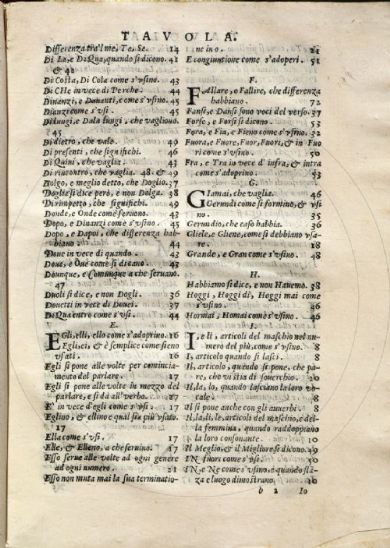 TAVOLA.
Differenza tra'l me, Te, Se. 14
Di La, e Di Qua, quando si dicono. 41
& 42
Di Costa, Di Cola come s'usino. 43
Di CHe in vece di Perche. 44
Dinanzi, e Dananti, e come s'usino. 45
come s'usi. 45
Dilungi, e Dala lungi, che vagliono.
45
Di dietro, che vale. 40
Di presenti, che significhi. 46
Di Quini, che vaglia. 43
Di riscontro, che vaglia. 48. & 49
Dolgo, e meglio detto, che Doglio. 37
Dogliesi dice però, e non Dolga. 38
Di rimpetto, che significhi. 49
Donde, e Onde come seruono. 43
Dopo, e Dinanzi come s'usino. 45
Dopo, e Dapoi, che differenza habbiano. 44
Doue in vece di quando. 43
Doue, e Oue come si dicano. 43
Dounque, e Comunque a che seruano.
47
Duoli si dice, e non Dogli. 38
Donetti in vece di Douei. 37
Da Qua entro come s'usi. 44
E.
EGli, elli, ello come s'adoprino. 16
Eglisti, & è semplice come sieno
usati. 16
Egli si pone alle volte per cominciamento
del parlare. 17
Egli si pone alle volte in mezzo del
parlare, e si dà all'verbo. 17
E' in vece d'egli come s'usi. 17
Eglino, & ellino e qual sia più usato.
17
Ella come s'usi. 17
Elle, & Elleno, a che seruino. 17
Esso serue alle volte ad ogni genere
ad ogni numero. 21
Esso non muta mai la sua terminatione
in o. 21
E congiuntione come s'adoperi. 51
F.
FAllare, e Fallire, che differenza
habbiano. 72
Fansi, e Dansi sono voci del verso. 37
Forse, e Forsi si dicono. 53
Fora, e Fia, e Fieno come s'usino. 32
Fuora, e Fuore, Fuor, Fuori, & in Fuori
come s'usino. 50
Fra, e Tra in vece d'infra, & intra
come s'adoprino. 53
G.
GIamai, che vaglia. 46
Gerundi come si formino, & usino.
35
Gerundio, che caso habbia. 36
Gliele, e Gliene, come si debbiano usare.
18
Grande, e Gran come s'usino. 48
H.
Habbiamo si dice, e non Hauemo. 38
Hoggi, Hoggi dì, Hoggi mai come
s'usino. 46
Hormai, Homai come s'usino. 46
I.
I, e li, articoli del maschio nel numero
del più, come s'usino. 8
I, articolo quando si lasci. 8
Il, articolo, quando si pone, che pare,
che vi stia di souerchio. 20
Il, la, lo, quando lasciano la loro vocale.
8
Il si pone anche con gli auuerbi. 9
Il, la, li, le, articoli del maschio, e della
femmina, quando raddoppiano
la loro consonante. 10
Il Meglio, & il Migliore si dicono. 49
IN, fuori come s'usi. 50
IN, e Ne come s'usino, e quando stanza
e luogo dimostrano. 30
b 2 Io